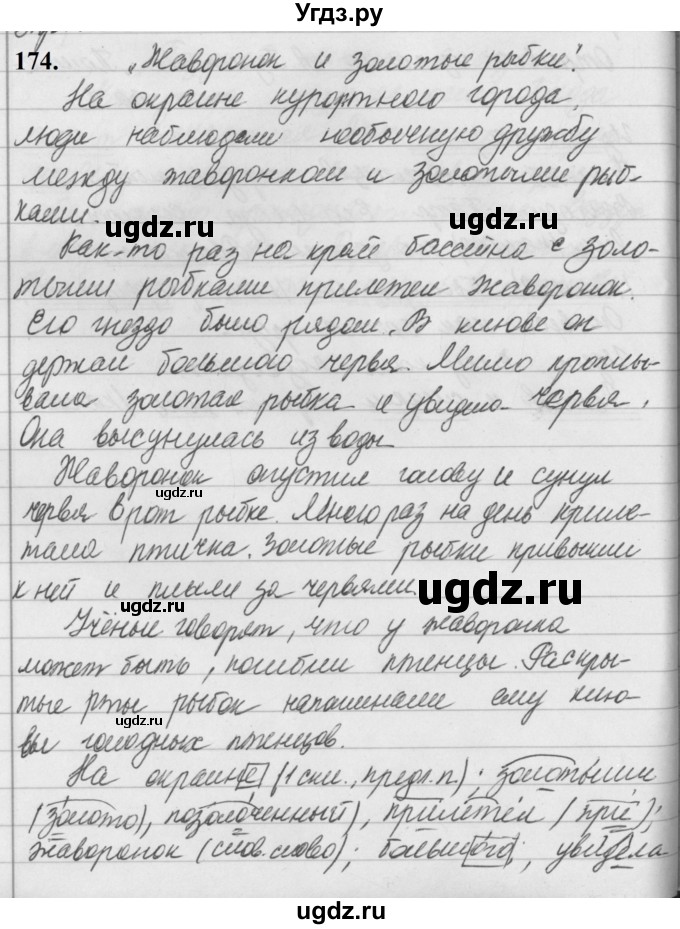 Угдз.ру
174. „Жаворонок и золотые рыбки“.
На окраине курортного города
люди наблюдали необычную дружбу
между жаворонком и золотыми рыб-
ками.
ugdz.ru ugdz.ru
Как-то раз на край бассейна с золо-
тыми рыбками прилетел жаворонок.
Его гнездо было рядом. В клюве он
держал большого червя. Мимо проплы-
вала золотая рыбка и увидела червя.
ugdz.ru
Она высунулась из воды.
Жаворонок опустил голову и сунул
ugdz.ru
червя в рот рыбке. Много раз на день приле-
тала птичка. Золотые рыбки привыкли
к ней и плыли за червями.
ugdz.ru
ugdz.ru
Учёные говорят, что у жаворонка
может быть, погибли птенцы. Раскры-
тые рты рыбок напоминали ему клю-
ugdz.ru
вы голодных птенцов.
На окраине (1 скл., предл. п.); золотыми
(золото), позолоченный), прилетел (при);
жаворонок (слов. слово); большого; увидела
ugdz.ru
ugdz.ru